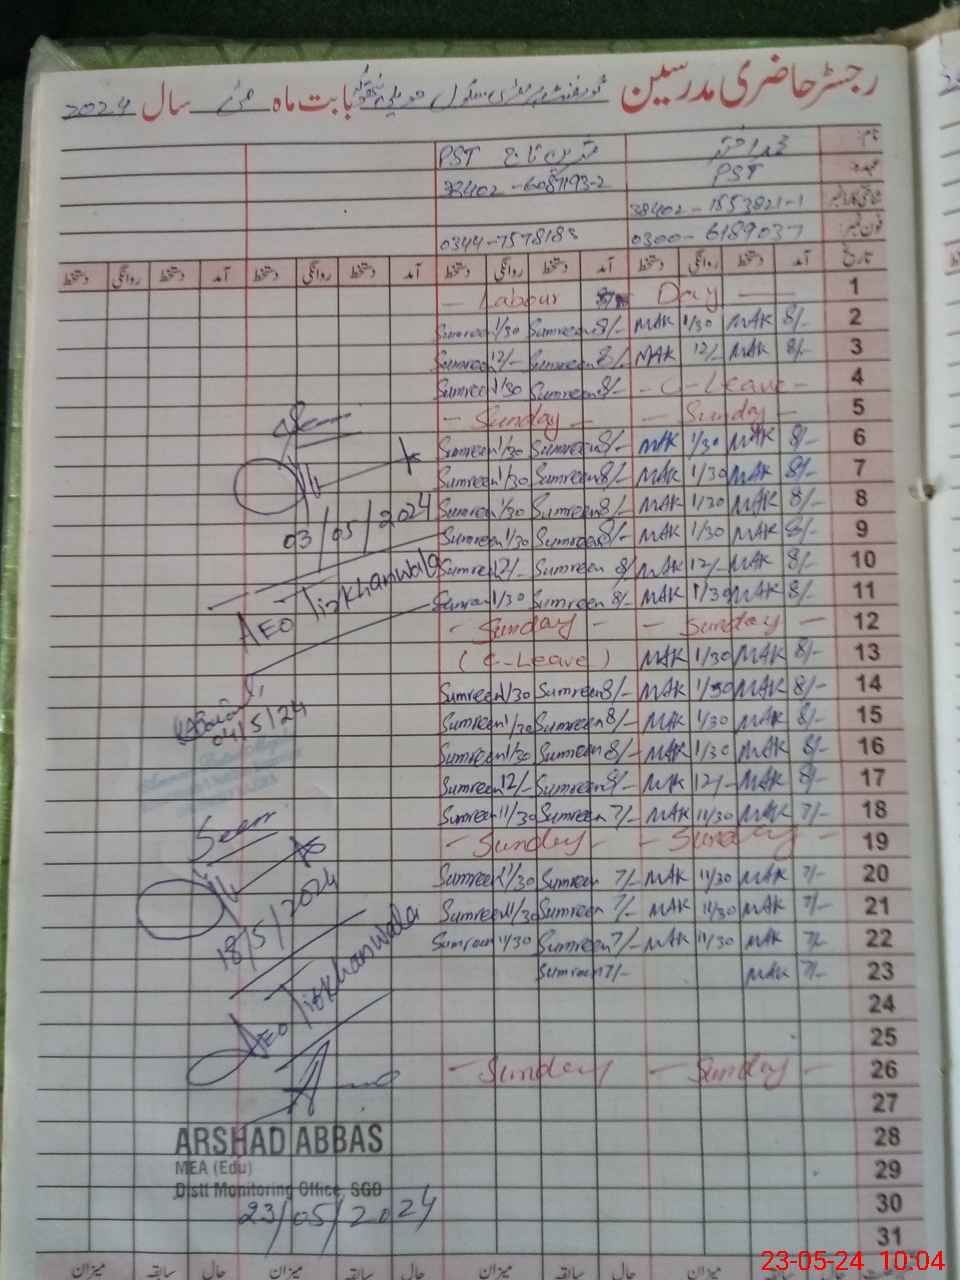 رجسٹر حاضری مدرسین گورنمنٹ پرائمری سکول بابت ماہ مئی سال 2024
PST
PST
38402-6087193-2
38402-1553821-1
0344-7578183
0300-6189037
تاریخ آمد دستخط روانگی دستخط آمد دستخط روانگی دستخط آمد دستخط روانگی دستخط آمد دستخط روانگی دستخط
- Labour Day - 1
Sumreen 1/30 Sumreen 8/- MAK 1/30 MAK 8/- 2
Sumreen 12/- Sumreen 8/- MAK 12/- MAK 8/- 3
Sumreen 1/30 Sumreen 8/- - C-Leave - 4
- Sunday - - Sunday - 5
Sumreen 1/30 Sumreen 8/- MAK 1/30 MAK 8/- 6
Sumreen 1/30 Sumreen 8/- MAK 1/30 MAK 8/- 7
Sumreen 1/30 Sumreen 8/- MAK 1/30 MAK 8/- 8
Sumreen 1/30 Sumreen 8/- MAK 1/30 MAK 8/- 9
Sumreen 12/- Sumreen 8/- MAK 12/- MAK 8/- 10
Sumreen 1/30 Sumreen 8/- MAK 1/30 MAK 8/- 11
- Sunday - - Sunday - 12
(C-Leave) MAK 1/30 MAK 8/- 13
Sumreen 1/30 Sumreen 8/- MAK 1/30 MAK 8/- 14
Sumreen 1/30 Sumreen 8/- MAK 1/30 MAK 8/- 15
Sumreen 1/30 Sumreen 8/- MAK 1/30 MAK 8/- 16
Sumreen 12/- Sumreen 8/- MAK 12/- MAK 8/- 17
Sumreen 11/30 Sumreen 7/- MAK 11/30 MAK 7/- 18
- Sunday - - Sunday 19
Sumreen 11/30 Sumreen 7/- MAK 11/30 MAK 7/- 20
Sumreen 11/30 Sumreen 7/- MAK 11/30 MAK 7/- 21
Sumreen 11/30 Sumreen 7/- MAK 11/30 MAK 7/- 22
Sumreen 7/- MAK 7/- 23
24
25
- Sunday - Sunday - 26
27
28
29
30
31
03/05/2024
AEO Titkhanwala
04/5/24
Seen
18/5/2024
AEO Titkhanwala
ARSHAD ABBAS
MEA (Edu)
Distt Monitoring Office, SGD
23/05/2024
حال سابقہ میزان حال سابقہ میزان حال سابقہ میزان
23-05-24 10:04